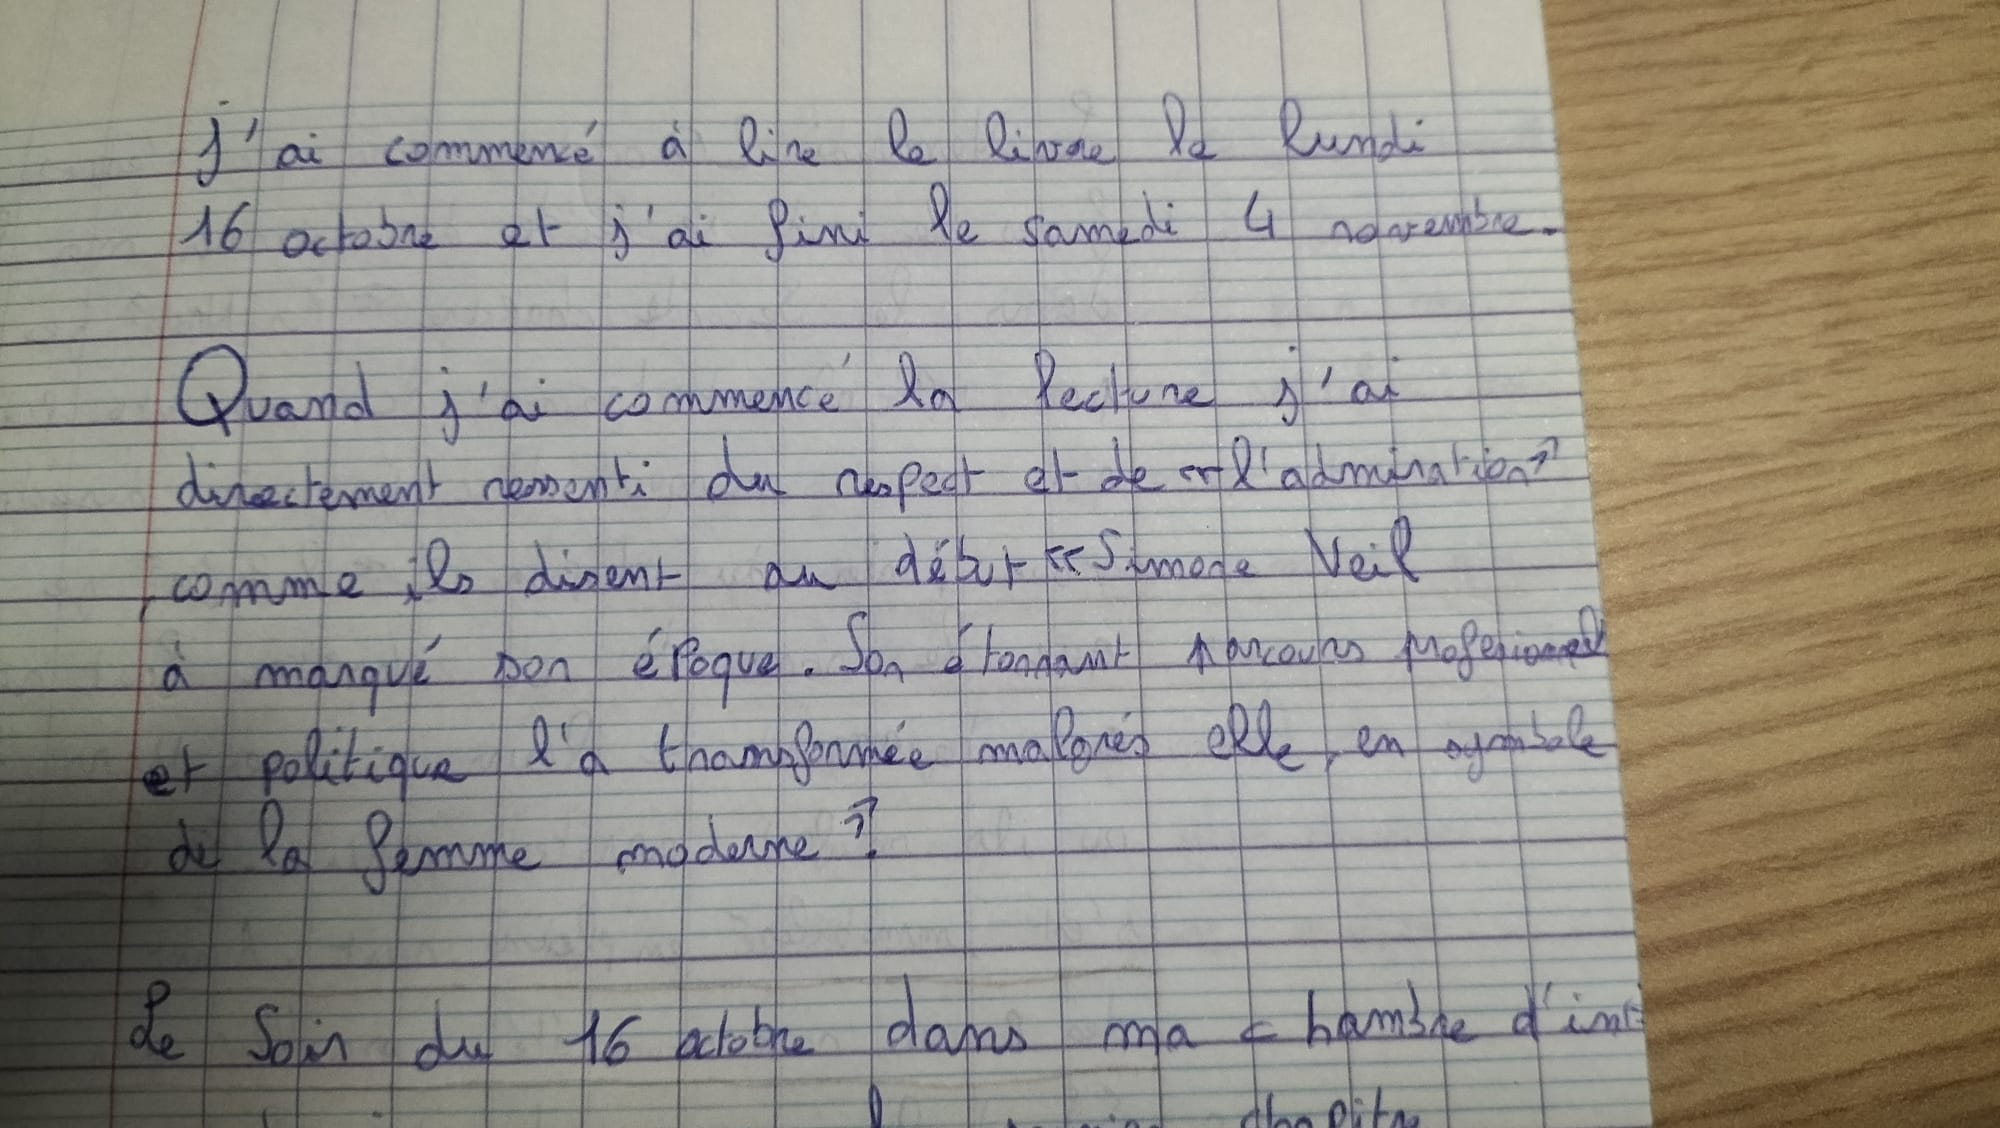 j'ai commencé à lire le livre le lundi
16 octobre et j'ai fini le samedi 4 novembre.
Quand j'ai commencé la lecture j'ai
directement ressenti du respect et de l'admiration
comme ils disent au début «Simone Veil
à marqué son époque. Son étonnant parcours profesionnel
et politique l'a transformée malgrés elle, en symbole
de la femme moderne
Le Soir du 16 octobre dans ma chambre d'int
chapitre